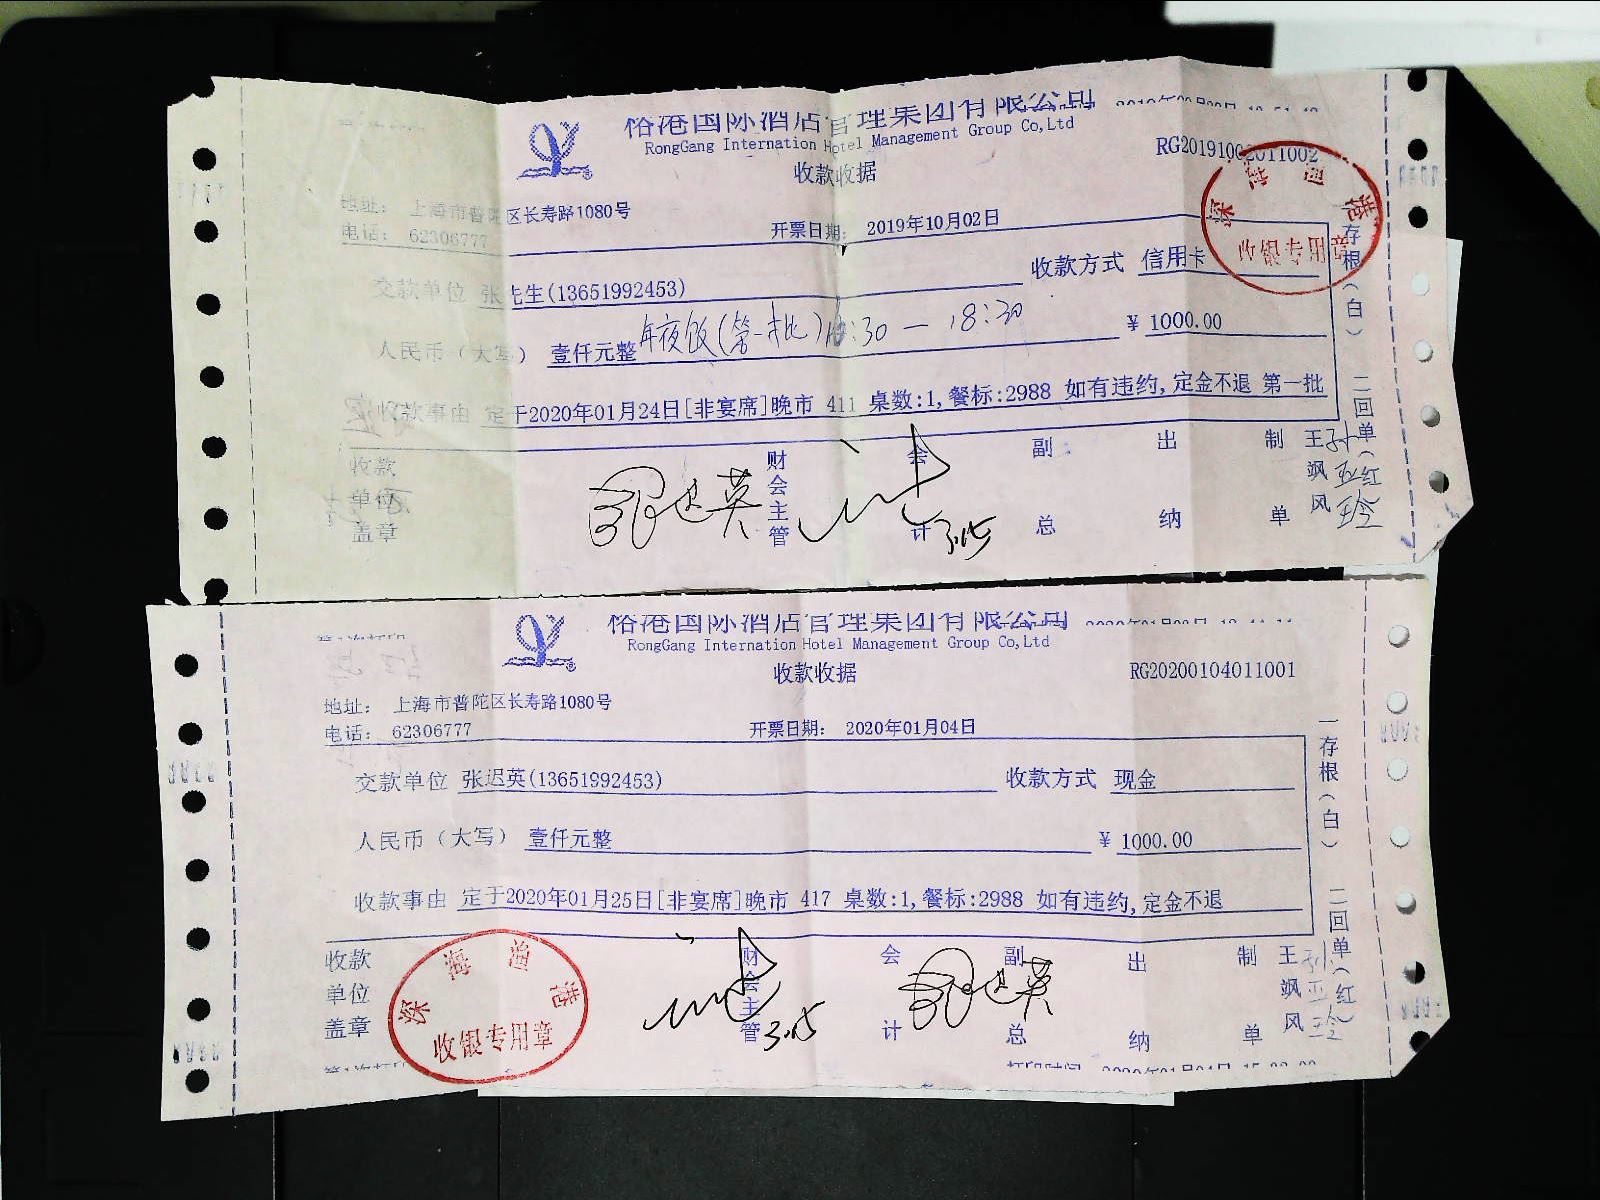 国际酒店管理集团有限公司
RongGang Internation Hotel Management Group Co,Ltd
收款收据
RG20191002011002
地址： 上海市普陀区长寿路1080号
电话： 62306777
开票日期： 2019年10月02日
交款单位 张先生(13651992453)
收款方式 信用卡
人民币（大写） 壹仟元整
年夜饭(第一批)
:30 — 18:30
¥ 1000.00
收款事由 定于2020年01月24日[非宴席]晚市 411 桌数:1,餐标:2988 如有违约,定金不退 第一批
收款单位盖章
财会主管
会计
副总
出纳
制单
王飒风
孙亚玲
张迟英
3.15
存根（白） 二回单（红）
深海涵港
收银专用章
港国际酒店管理集团有限公司
RongGang Internation Hotel Management Group Co,Ltd
收款收据
RG20200104011001
地址： 上海市普陀区长寿路1080号
电话： 62306777
开票日期： 2020年01月04日
交款单位 张迟英(13651992453)
收款方式 现金
人民币（大写） 壹仟元整
¥ 1000.00
收款事由 定于2020年01月25日[非宴席]晚市 417 桌数:1,餐标:2988 如有违约,定金不退
收款单位盖章
财会主管
会计
副总
出纳
制单
王飒风
孙亚玲
3.15
张迟英
一存根（白） 二回单（红）
收银专用章